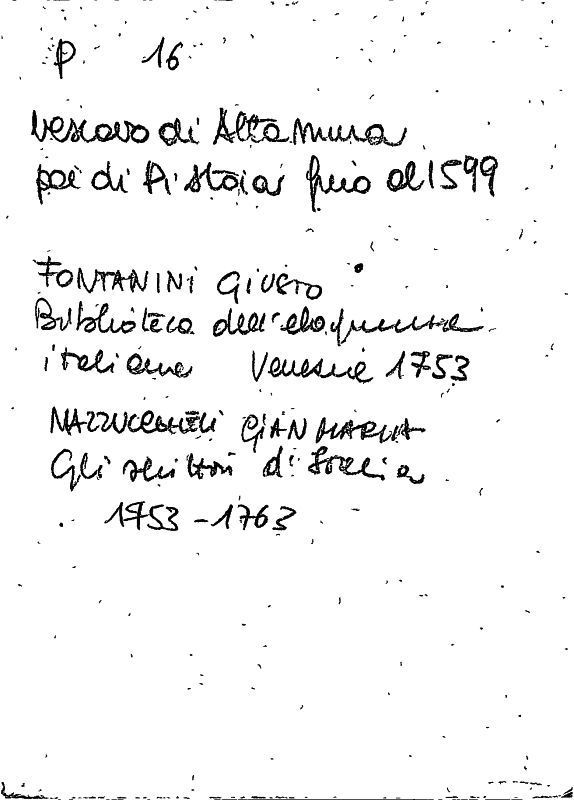 p 16
vescovo di Altamura
poi di Pistoia fino al 1599
FONTANINI GIUSTO
Biblioteca dell'eloquenza
italiana Venezia 1753
MAZZUCHELLI GIAN MARIA
Gli scrittori d'Italia
1753-1763